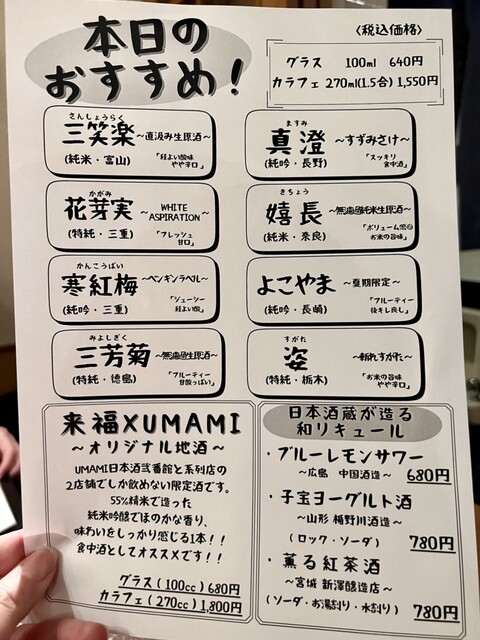 本日の
おすすめ！
〈税込価格〉
グラス 100ml 640円
カラフェ 270ml(1.5合) 1,550円
さんしょうらく
三笑楽 ～直汲み生原酒～
(純米・富山) 「軽よい酸味 やや辛口」
ますみ
真澄 ～すずみさけ～
(純吟・長野) 「スッキリ 食中酒」
かがみ
花芽実 ～WHITE ASPIRATION～
(特純・三重) 「フレッシュ 甘口」
きちょう
嬉長 ～無濾過純米生原酒～
(純米・奈良) 「ボリューム満点 お米の旨味」
かんこうばい
寒紅梅 ～ペンギンラベル～
(純吟・三重) 「ジューシー 軽よい酸」
よこやま ～夏期限定～
(純吟・長崎) 「フルーティー 後キレ良し」
みよしぎく
三芳菊 ～無濾過生原酒～
(特純・徳島) 「フルーティー 甘酸っぱい」
すがた
姿 ～斬れすがた～
(特純・栃木) 「お米の旨味 やや辛口」
来福XUMAMI
～オリジナル地酒～
UMAMI日本酒弐番館と系列店の
2店舗でしか飲めない限定酒です。
55%精米で造った
純米吟醸でほのかな香り、
味わいをしっかり感じる1本！！
食中酒としてオススメです！！
グラス(100cc) 680円
カラフェ(270cc) 1,800円
日本酒蔵が造る
和リキュール
・ブルーレモンサワー
～広島 中国酒造～ 680円
・子宝ヨーグルト酒
～山形 楯野川酒造～
(ロック・ソーダ) 780円
・薫る紅茶酒
～宮城 新澤醸造店～
(ソーダ・お湯割り・水割り) 780円